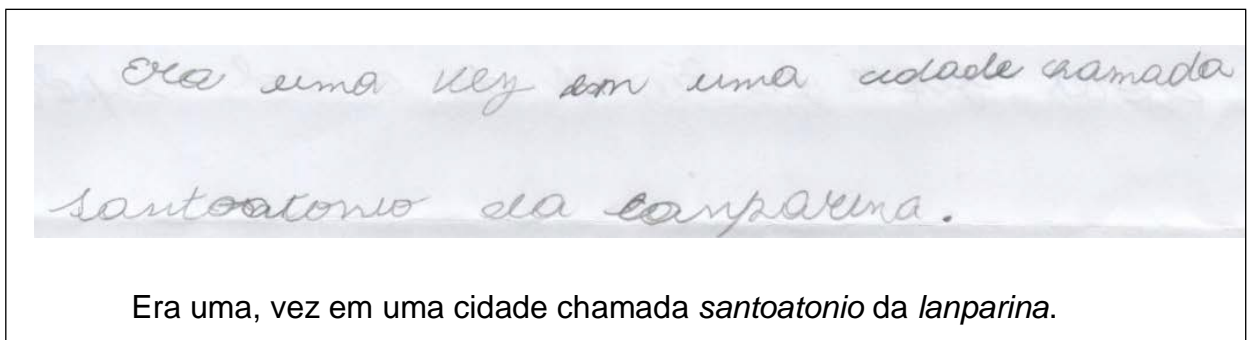 Era uma vez em uma cidade chamada
santoatonio da lanparina.
Era uma, vez em uma cidade chamada santoatonio da lanparina.